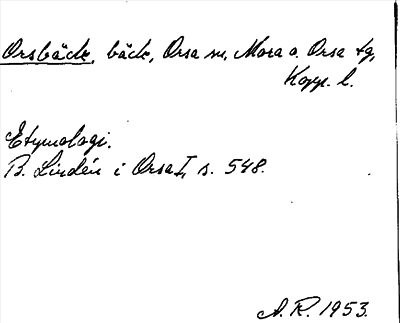 Orsbäck, bäck, Orsa sn, Mora o. Orsa tg,
Kopp. l.
Etymologi.
B. Lindén i Orsa I, s. 548.
A. R. 1953.